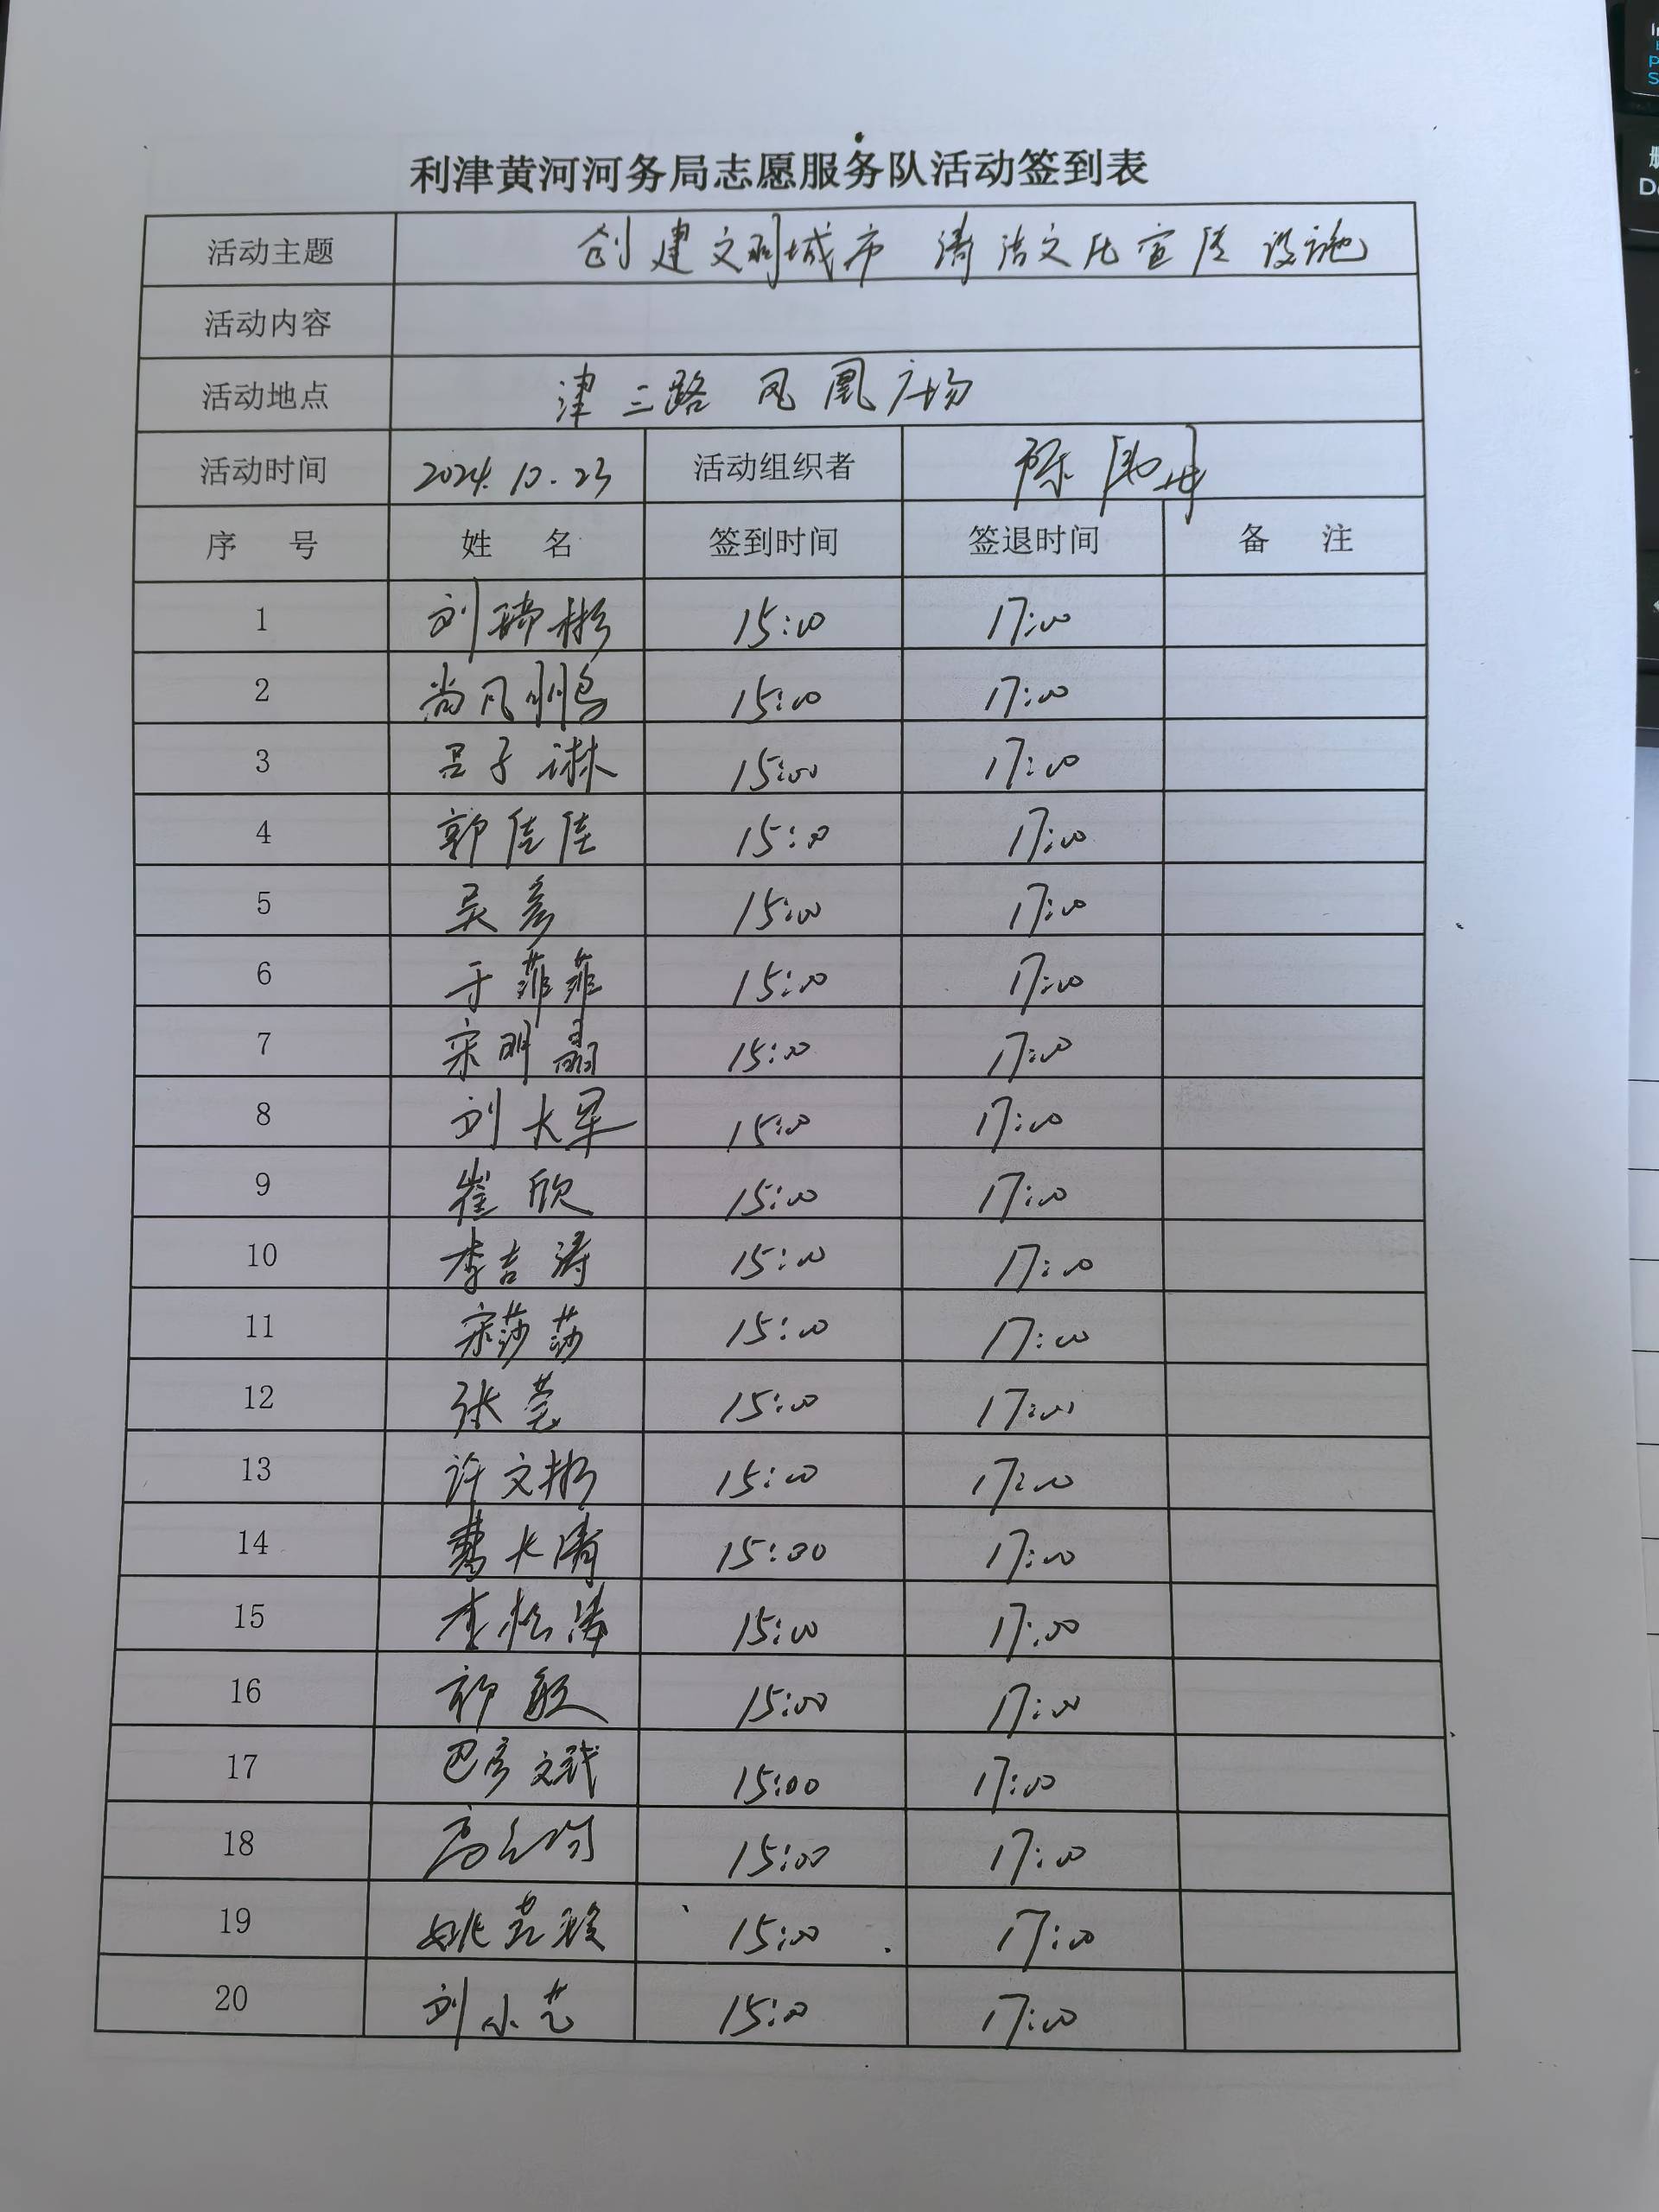 利津黄河河务局志愿服务队活动签到表
活动主题 创建文明城市 清洁文化宣传设施
活动内容
活动地点 津三路 凤凰广场
活动时间 2024.10.23 活动组织者 陈
序 号 姓 名 签到时间 签退时间 备 注
1 刘瑞彬 15:00 17:00
2 尚凡鹏 15:00 17:00
3 吕子琳 15:00 17:00
4 郭佳佳 15:00 17:00
5 吴彦 15:00 17:00
6 于菲菲 15:00 17:00
7 宋明磊 15:00 17:00
8 刘大军 15:00 17:00
9 崔欣 15:00 17:00
10 李吉涛 15:00 17:00
11 宋莎莎 15:00 17:00
12 张莞 15:00 17:00
13 许文彬 15:00 17:00
14 长清 15:00 17:00
15 李松涛 15:00 17:00
16 郭敏 15:00 17:00
17 巴彦文 15:00 17:00
18 高 15:00 17:00
19 姚 15:00 17:00
20 刘小艺 15:00 17:00